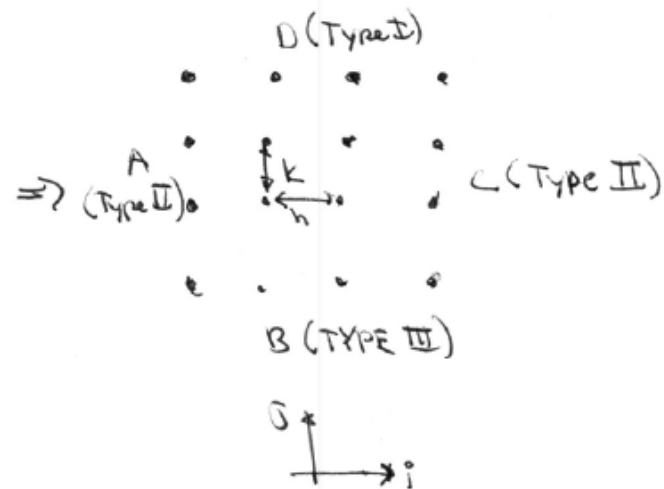 D (Type I)
A
K
⇒ (Type II)
C (Type II)
h
B (TYPE III)
j
i